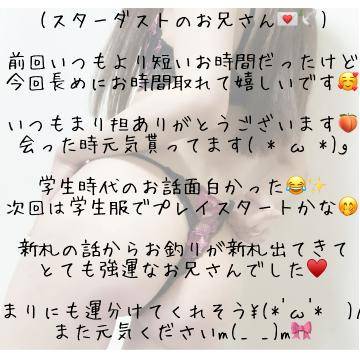 (スターダストのお兄さん💌🌠)
前回いつもより短いお時間だったけど
今回長めにお時間取れて嬉しいです🥰
いつもまり担ありがとうございます🍑
会った時元気貰ってます( * ω *)و
学生時代のお話面白かった😂✨
次回は学生服でプレイスタートかな🤭
新札の話からお釣りが新札出てきて
とても強運なお兄さんでした♥️
まりにも運分けてくれそう\(*'ω'* )/
また元気くださいm(_ _)m🎀